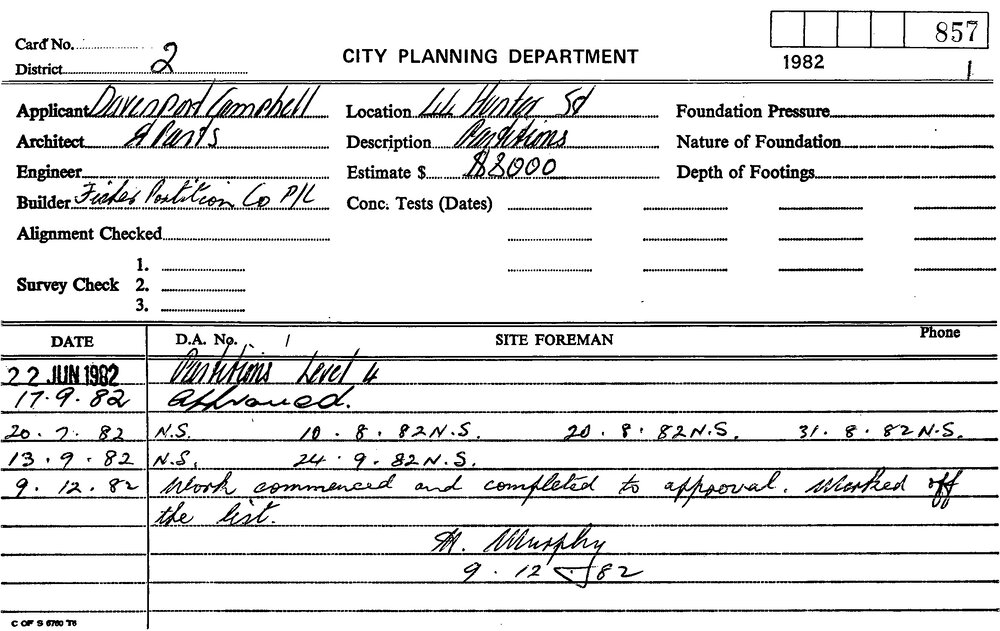 857
Card No.
District 2
CITY PLANNING DEPARTMENT
1982
1
Applicant Davenport Campbell Location 44 Hunter St Foundation Pressure
Architect & Parts Description Partitions Nature of Foundation
Engineer Estimate $ $8000 Depth of Footings
Builder Fisher Partition Co P/L Conc. Tests (Dates)
Alignment Checked
1.
Survey Check 2.
3.
DATE D.A. No. SITE FOREMAN Phone
22 JUN 1982 Partitions Level 4
17.9.82 Approved.
20.7.82 N.S. 10.8.82 N.S. 20.8.82 N.S. 31.8.82 N.S.
13.9.82 N.S. 24.9.82 N.S.
9.12.82 Work commenced and completed to approval. Marked off
the list.
M. Murphy
9.12.82
C OF S 6760 T6